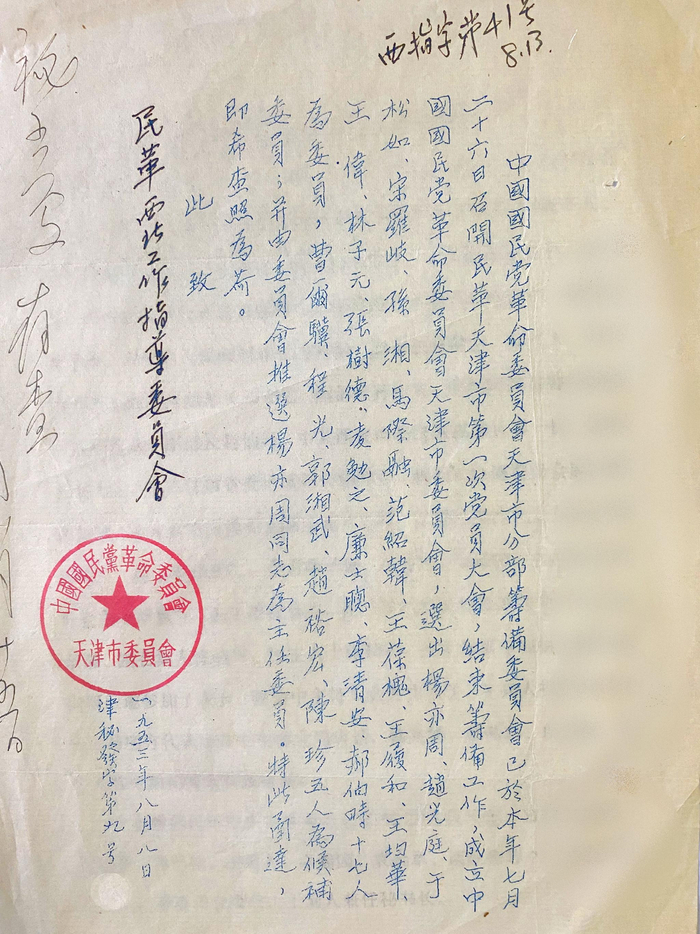 西指字第41号
8.13.
中國國民党革命委員會天津市分部籌備委員會已於本年七月
二十六日召開民革天津市第一次党員大會，結束籌備工作，成立中
國國民党革命委員會天津市委員會，選出楊亦周、趙光庭、于
松如、宋羅岐、孫湘、馬際融、范紹韓、王葆槐、王履和、王均華、
王偉、林子元、張樹德、凌勉之、廉士聰、李清安、郝伯時十七人
為委員，曹爾驥、程光、郭湘武、趙裕宏、陳珍五人為候補
委員；并由委員會推選楊亦周同志為主任委員。特此函達，
即希查照為荷。
此致
民革西北工作指導委員會
中國國民黨革命委員會
天津市委員會
一九五三年八月八日
津秘發字第九号
存查